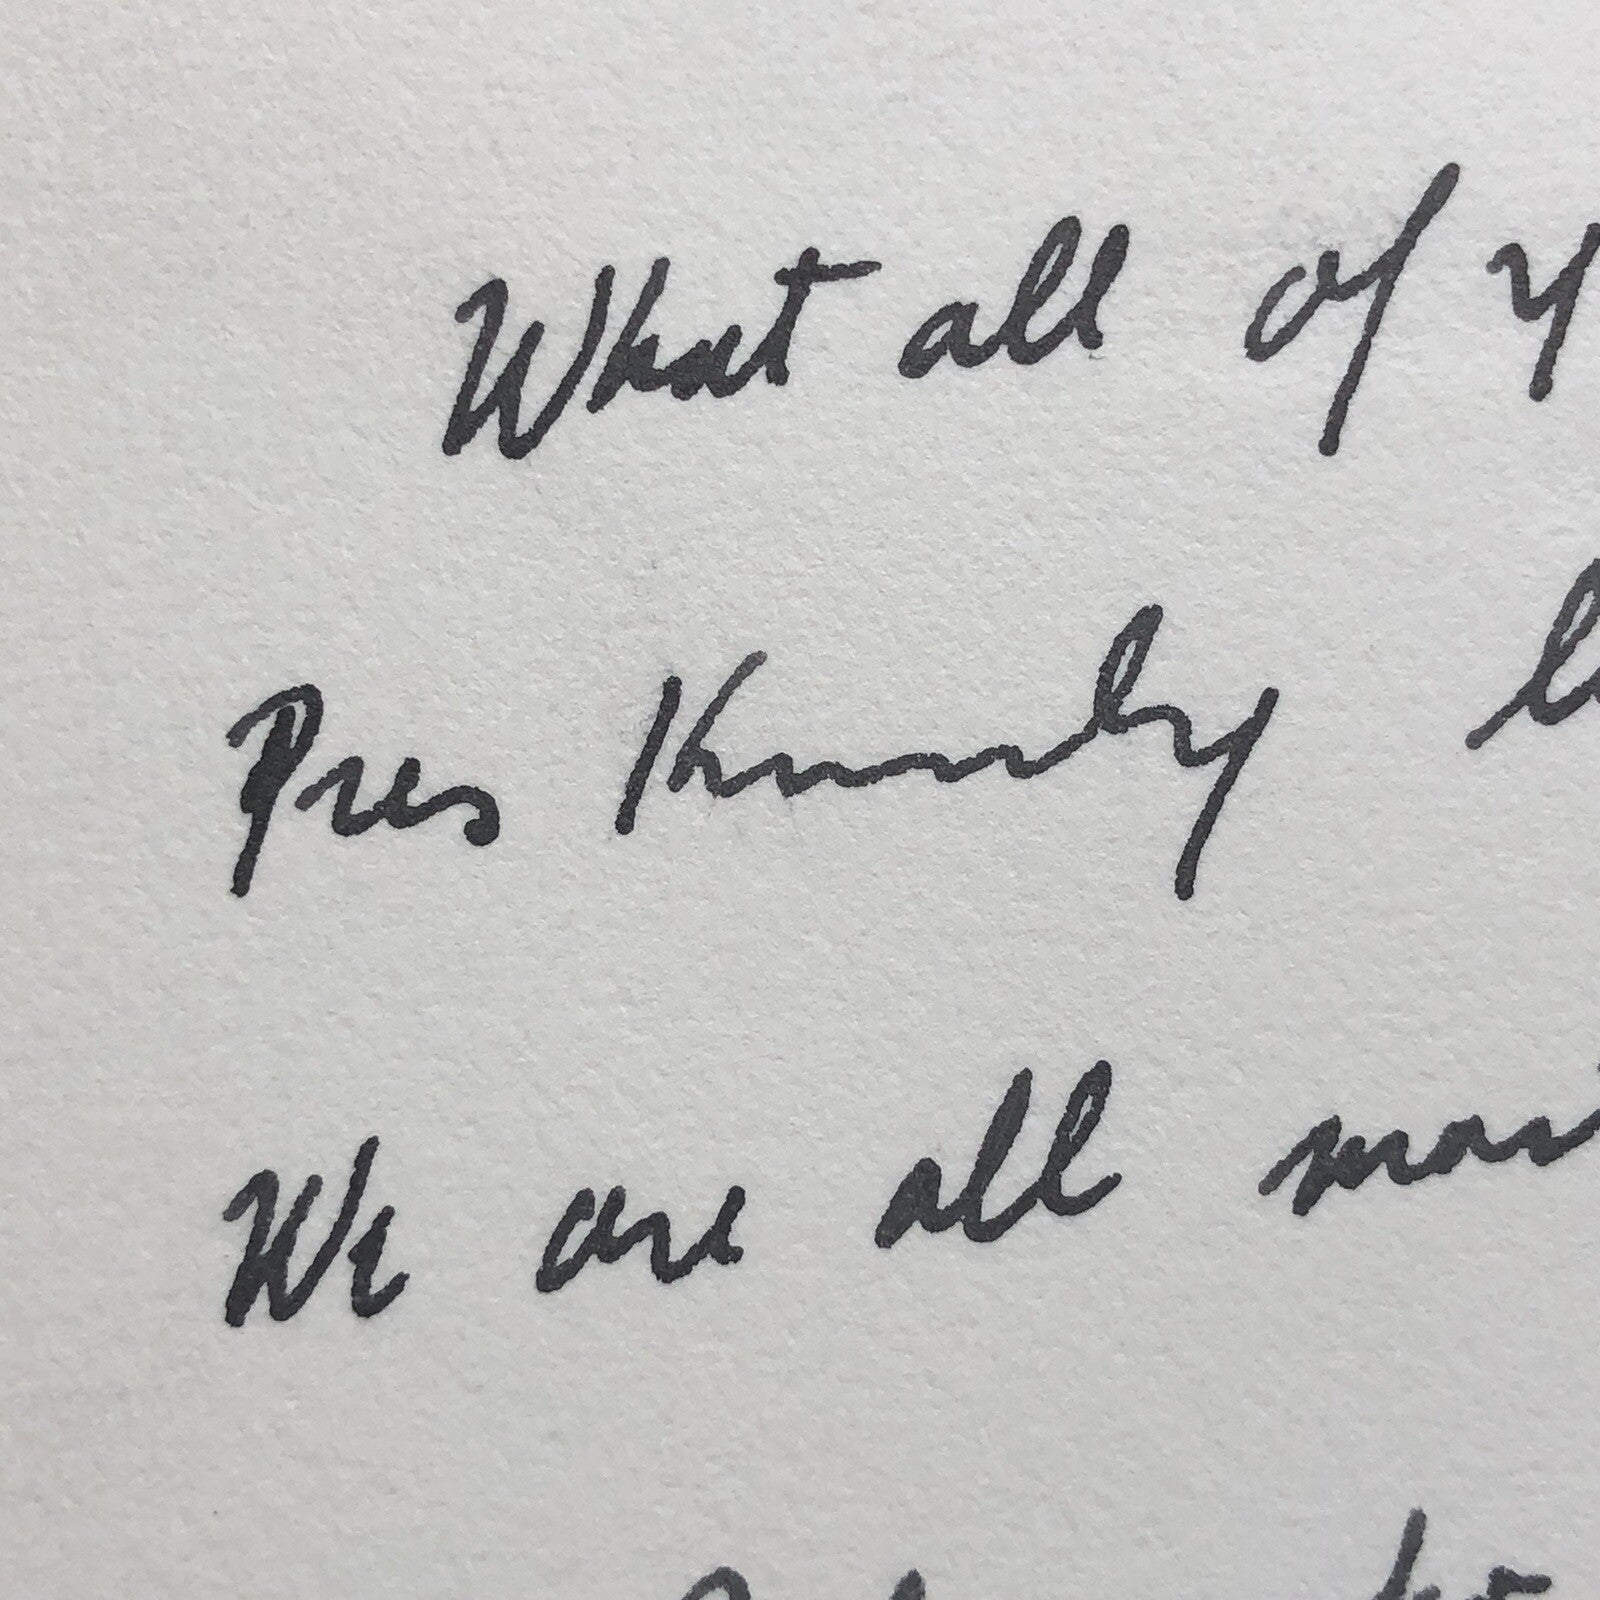 What all of y
Pres Kennedy
We are all